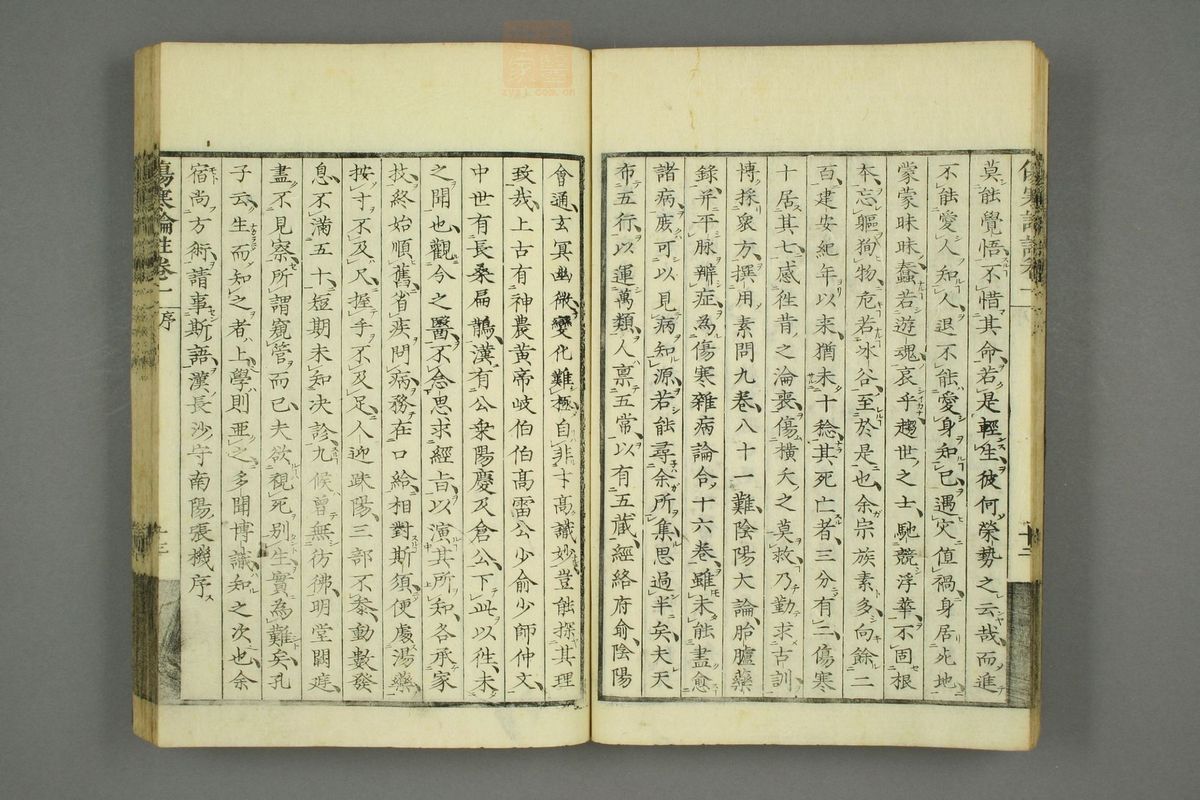 莫能覺悟不惜其命若是輕生彼何榮勢之云哉而進
不能愛人知人退不能愛身知己遇灾值禍身居戹地
蒙蒙昧昧蠢若遊魂哀乎趨世之士馳競浮華不固根
本忘軀狗物危若冰谷至於是也余宗族素多向餘二
百建安紀年以來猶未十稔其死亡者三分有二傷寒
十居其七感往昔之淪喪傷橫夭之莫救乃勤求古訓
博採衆方撰用素問九卷八十一難陰陽大論胎臚藥
錄并平脉辨症為傷寒雜病論合十六卷雖未能盡愈
諸病庻可以見病知源若能尋余所集思過半矣夫天
布五行以運萬類人禀五常以有五藏經絡府俞陰陽
會通玄冥幽微變化難極自非才高識妙豈能探其理
致哉上古有神農黃帝岐伯伯高雷公少俞少師仲文
中世有長桑扁鵲漢有公乘陽慶及倉公下此以往未
之聞也觀今之醫不念思求經旨以演其所知各承家
技終始順舊省疾問病務在口給相對斯須便處湯藥
按寸不及尺握手不及足人迎趺陽三部不參動數發
息不滿五十短期未知决診九候曾無彷彿明堂闕庭
盡不見察所謂窺管而已夫欲視死别生實為難矣孔
子云生而知之者上學則亞之多聞博識知之次也余
宿尚方術請事斯語漢長沙守南陽張機序
傷寒論註卷一 序 十三